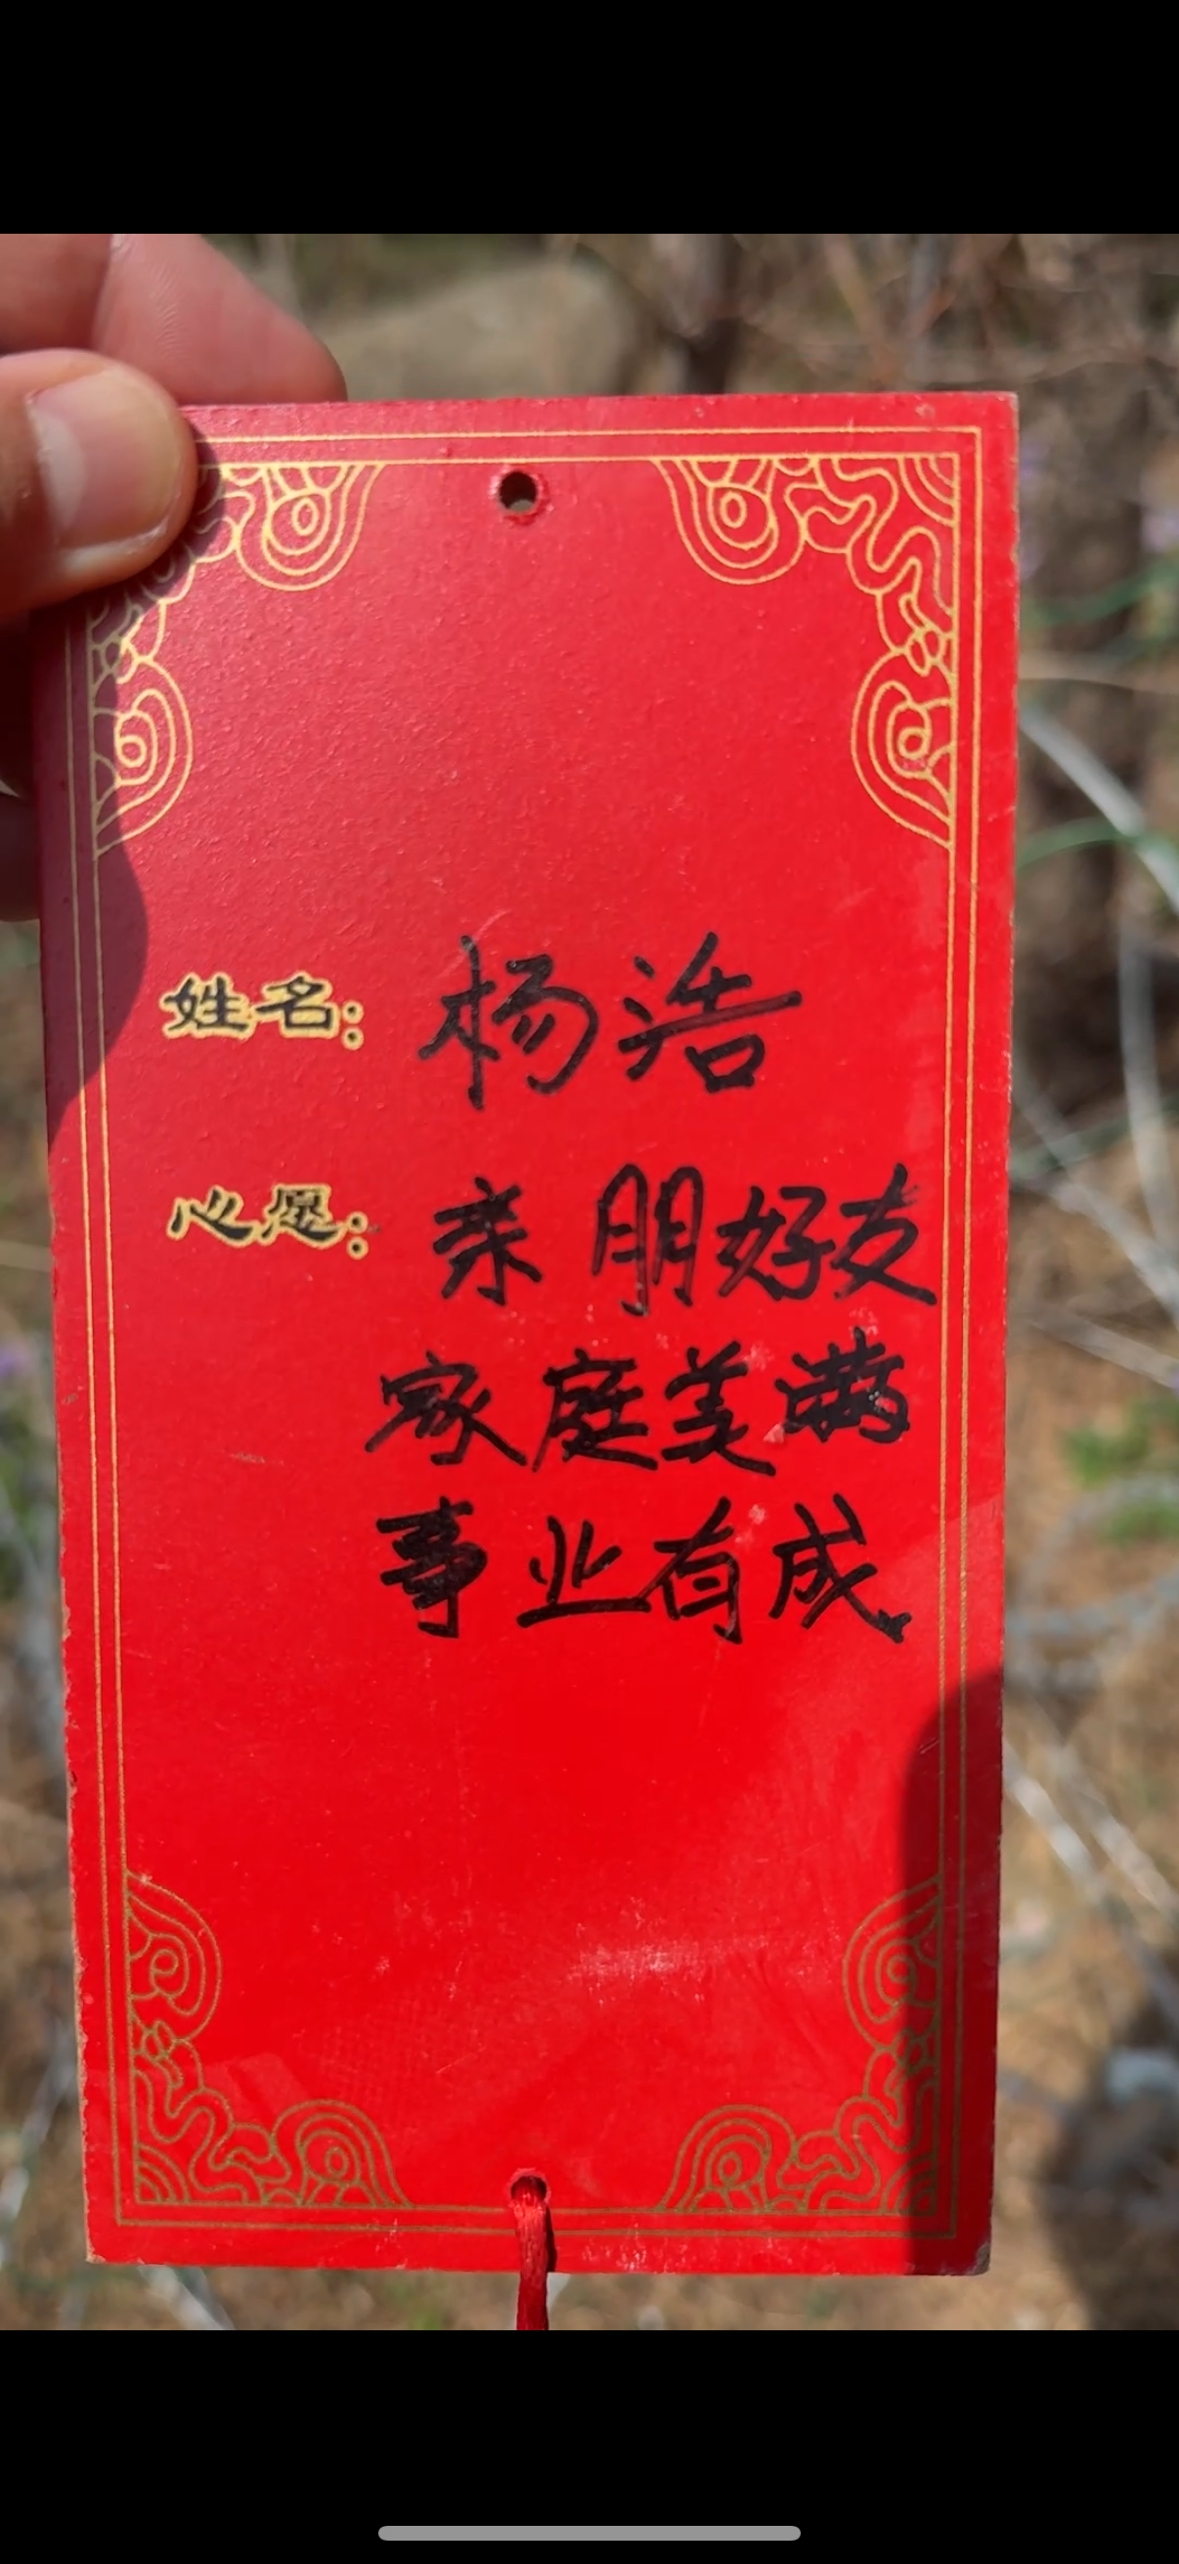 姓名：杨浩
心愿：亲朋好友
家庭美满
事业有成